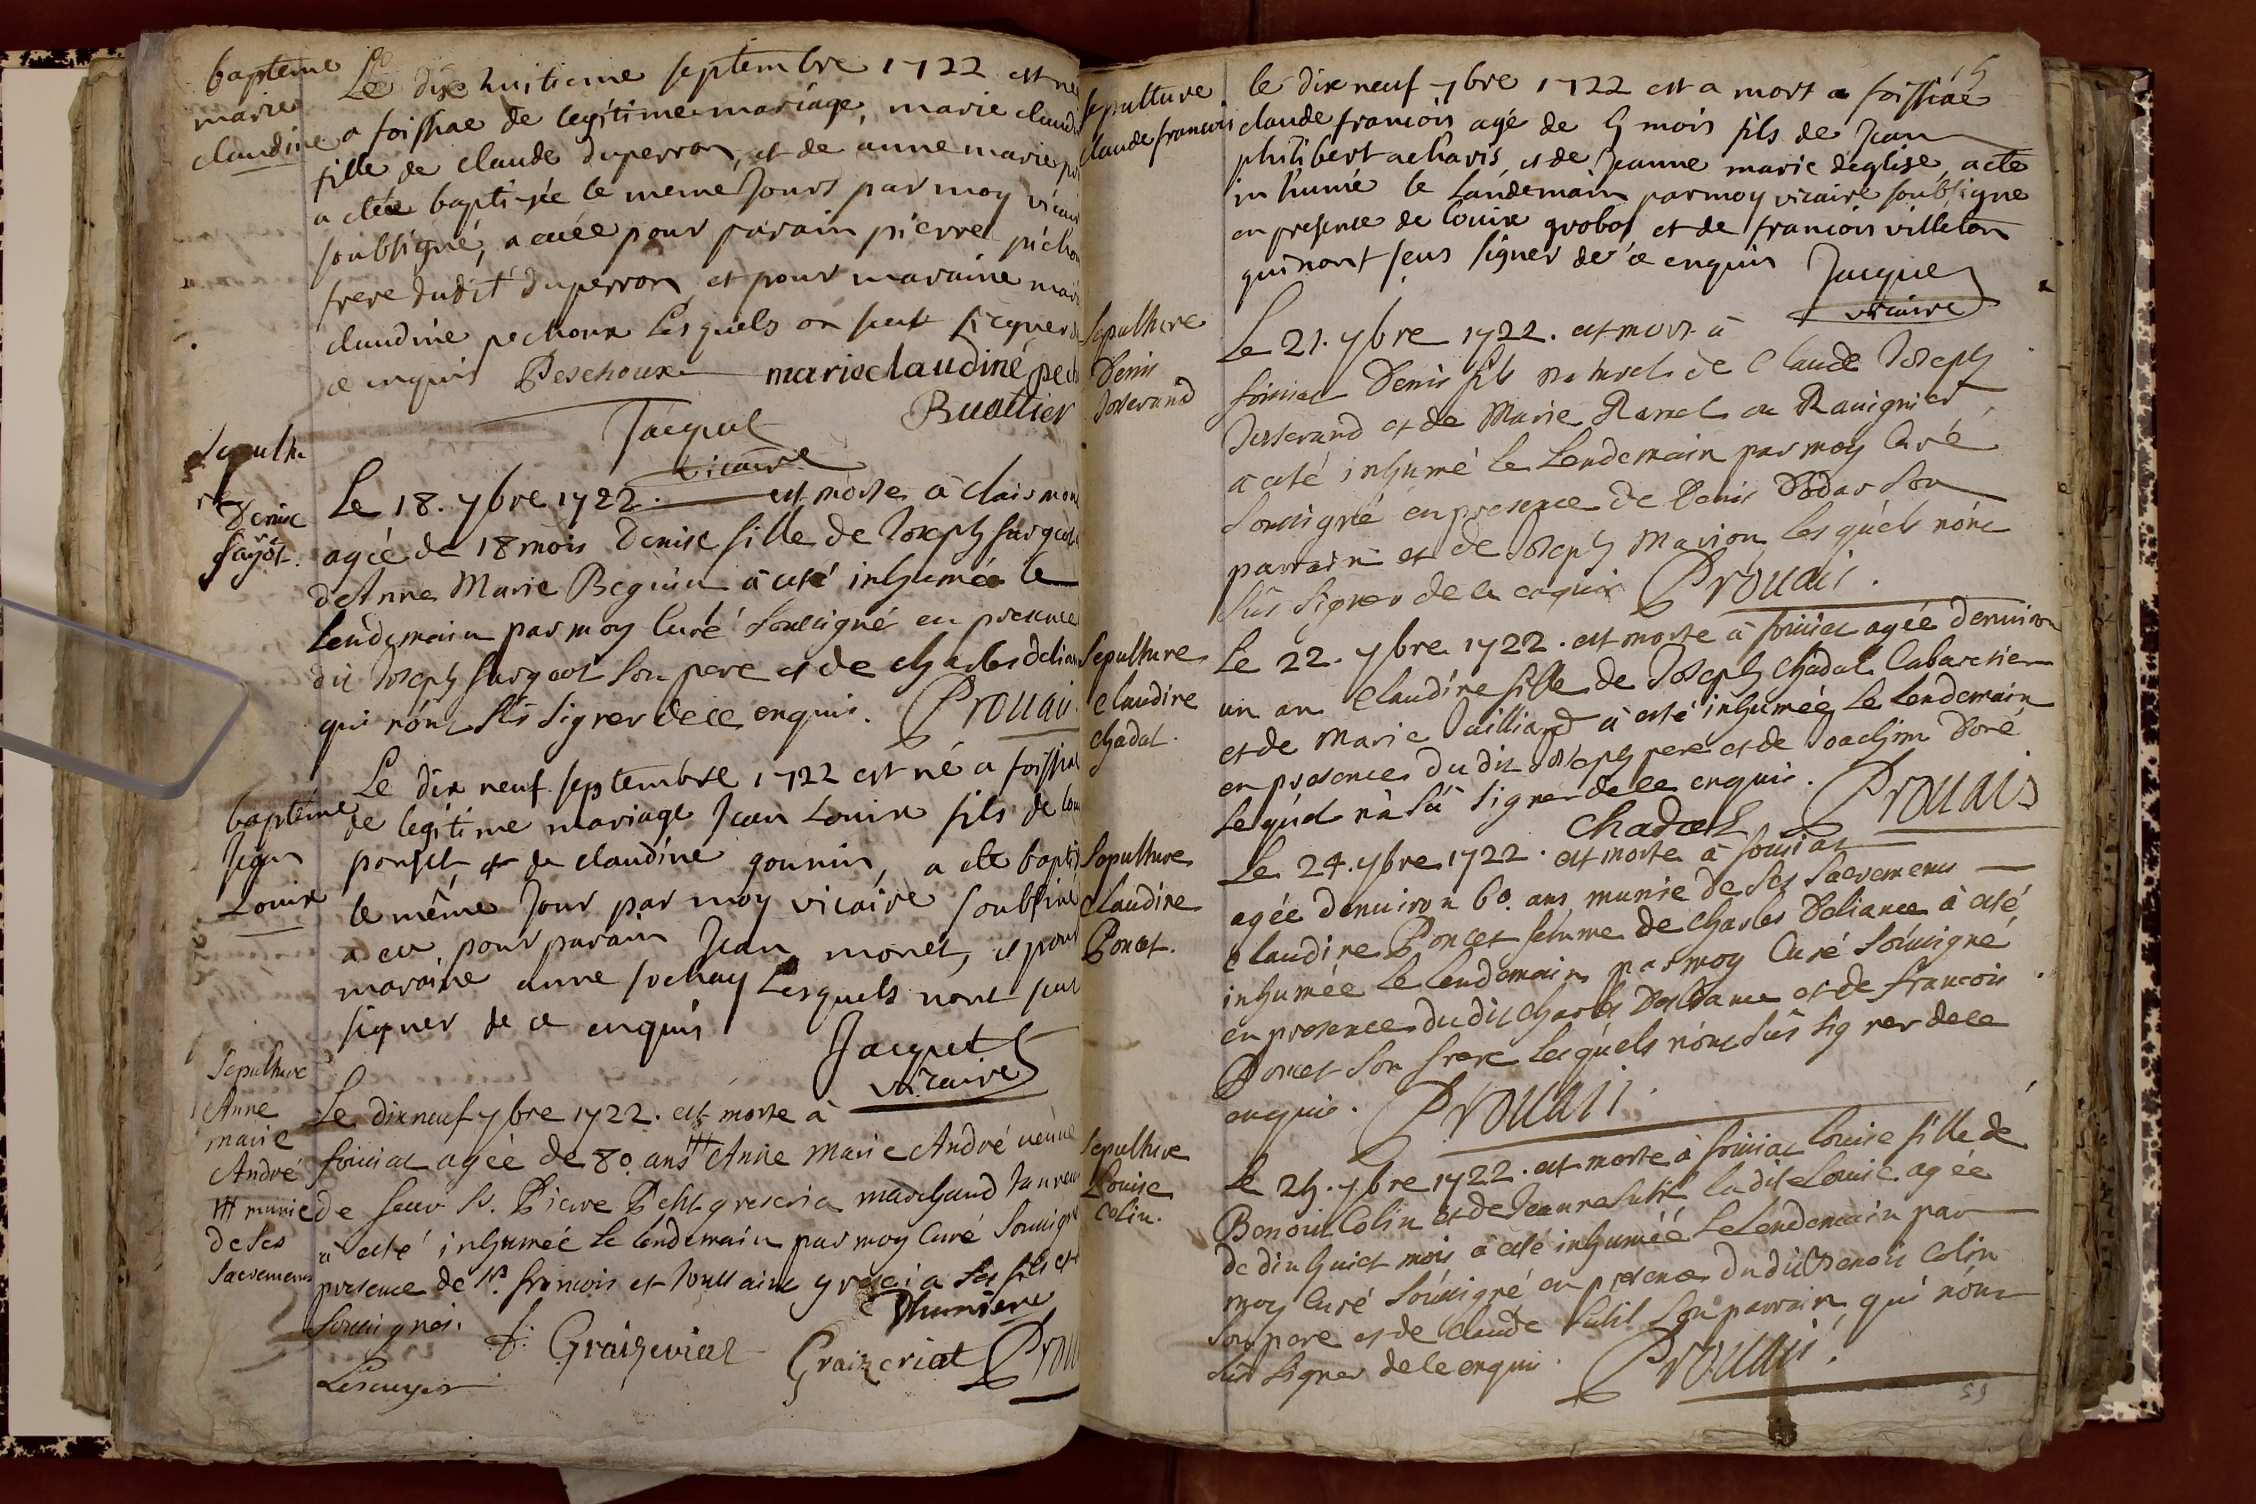 bapteme
marie
claudine
Le dix huitieme septembre 1722 est née
a foissiac de legitime mariage, marie claudi
fille de claude duperron, et de anne marie
a etée baptisée le meme Jours par moy vicair
soubsigné, a euée pour parain pierre péchou
frere dudit duperron et pour maraine mari
claudine pechoux Lesquels on seut signer de
ce enquis Peschoux marie claudine pech
Buallier
Jacquet
vicaire
Sepult.
Denise
Le 18. 7bre 1722. est morte a clairmon
agée de 18 mois Denise fille de Joseph
d'Anne Marie Beguin a esté inhumée le
Lendemain par moy Curé soussigné en presence
dit Joseph son pere et de charles delian
qui nont sus signer de ce enquis. Prouais
bapteme
Jean
Louix
Le dix neuf septembre 1722 est né a foissiac
de legitime mariage Jean Louix fils de lou
ponset et de claudine gounin, a ete bapti
le même Jour par moy vicaire soubsiné
a eu pour parain Jean monet, et pour
maraine anne sochay Lesquels nont seut
signer de ce enquis Jacquet
vicaire
Sepulture
Anne
marie
André
munie
de ses
Sacremens
Le dixneuf 7bre 1722. est morte à
foissiat agée de 80. ans Anne Marie André veuve
de feu Sr. Pierre Petit greseria marchand
a esté inhumée le lendemain par moy Curé soussigné
presence de Sr. francois et toussaint greseria ses fils et
soussignés.
f: Graizeriat Graizeriat Prou
Sepulture
claude francois
le dix neuf 7bre 1722 est a mort a foissiac
claude francois agé de 5 mois fils de Jean
philibert acharis et de Jeanne marie deglise, a ete
in humé le Landemain par moy vicaire soubsigne
en presense de louix grobos et de francois villeton
qui nont seus signer de ce enquis Jacquet
vicaire
Sepulture
Denis
Josserand
Le 21. 7bre 1722. est mort à
foissiat Denis fils naturel de Claude Joseph
Josserand et de Marie Ramel ou Ravignier
a esté inhumé le Lendemain par moy Curé
soussigné en presence de Denis Dodar son
parrain et de Joseph Marion lesquels nont
sus signer de ce enquis Prouais.
Sepulture
Claudine
chadal.
Le 22. 7bre 1722. est morte à foissiat agée d'environ
un an Claudine fille de Joseph chadal Cabaretier
et de Marie Jailliard a esté inhumée le Lendemain
en presence du dit Joseph pere et de Joachim Doré
lequel n'a sû signer de ce enquis. Prouais
chadal
Sepulture
Claudine
Poncet.
Le 24. 7bre 1722. est morte à foissiat
agée d'environ 60. ans munie de ses sacremens
Claudine Poncet femme de charles Deliance a esté
inhumée le Lendemain par moy Curé soussigné
en presence dudit charles Deliance et de francois
Poncet son frere lesquels nont sus signer de ce
enquis. Prouais.
Sepulture
Louise
Colin.
Le 25. 7bre 1722. est morte à foissiat louise fille de
Benoit Colin et de Jeanne Sutil la dite Louise agée
de dix huict mois a esté inhumée le Lendemain par
moy Curé soussigné en presence du dit Benoit Colin
son pere et de claude sutil son parrain qui nont
sus signer de ce enquis. Prouais.
59